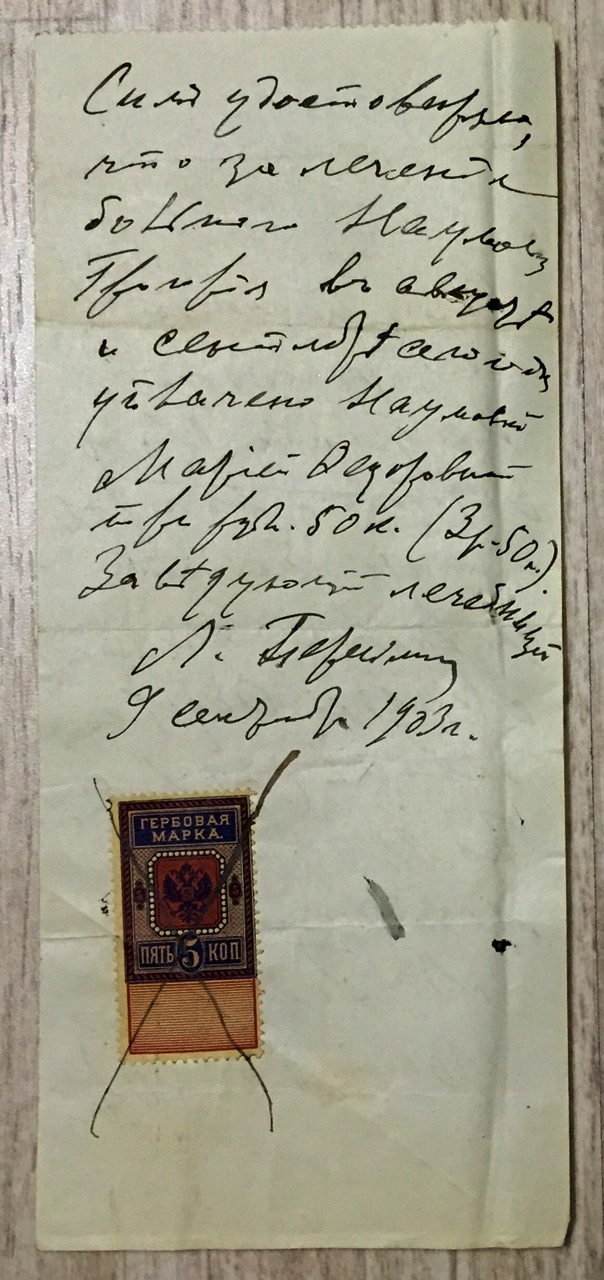 Симъ удостовѣряю,
что за леченіе
больного Наумова
Георгія въ августѣ
и сентябрѣ сего года
уплачено Наумовой
Маріей Ѳедоровной
три руб. 50 к. (3 р. 50 к.).
Завѣдующій лечебницей
Л.
9 сентября 1903 г.
ГЕРБОВАЯ
МАРКА.
ПЯТЬ 5 КОП